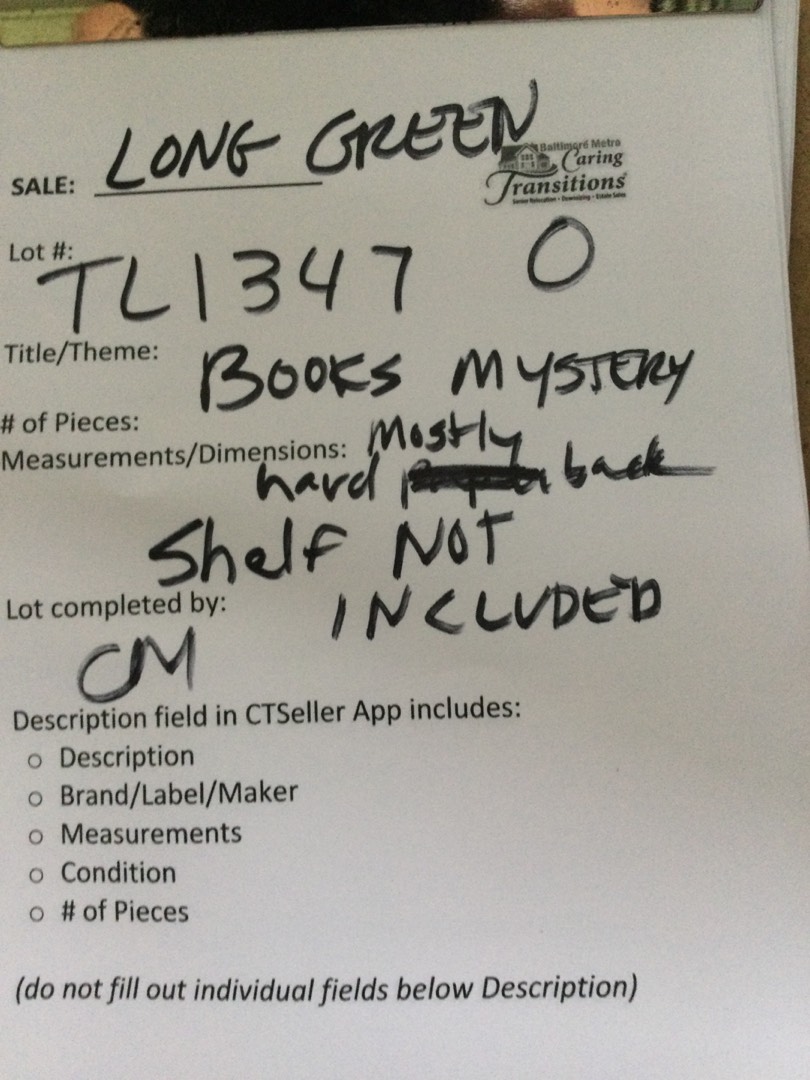 LONG GREEN
SALE:
Baltimore Metro
Caring
Transitions
Senior Relocation • Downsizing • Estate Sales
Lot #:
TL1347 O
Title/Theme:
BOOKS MYSTERY
# of Pieces:
Measurements/Dimensions: Mostly
hard back
Shelf NOT
INCLUDED
Lot completed by:
CM
Description field in CTSeller App includes:
o Description
o Brand/Label/Maker
o Measurements
o Condition
o # of Pieces
(do not fill out individual fields below Description)